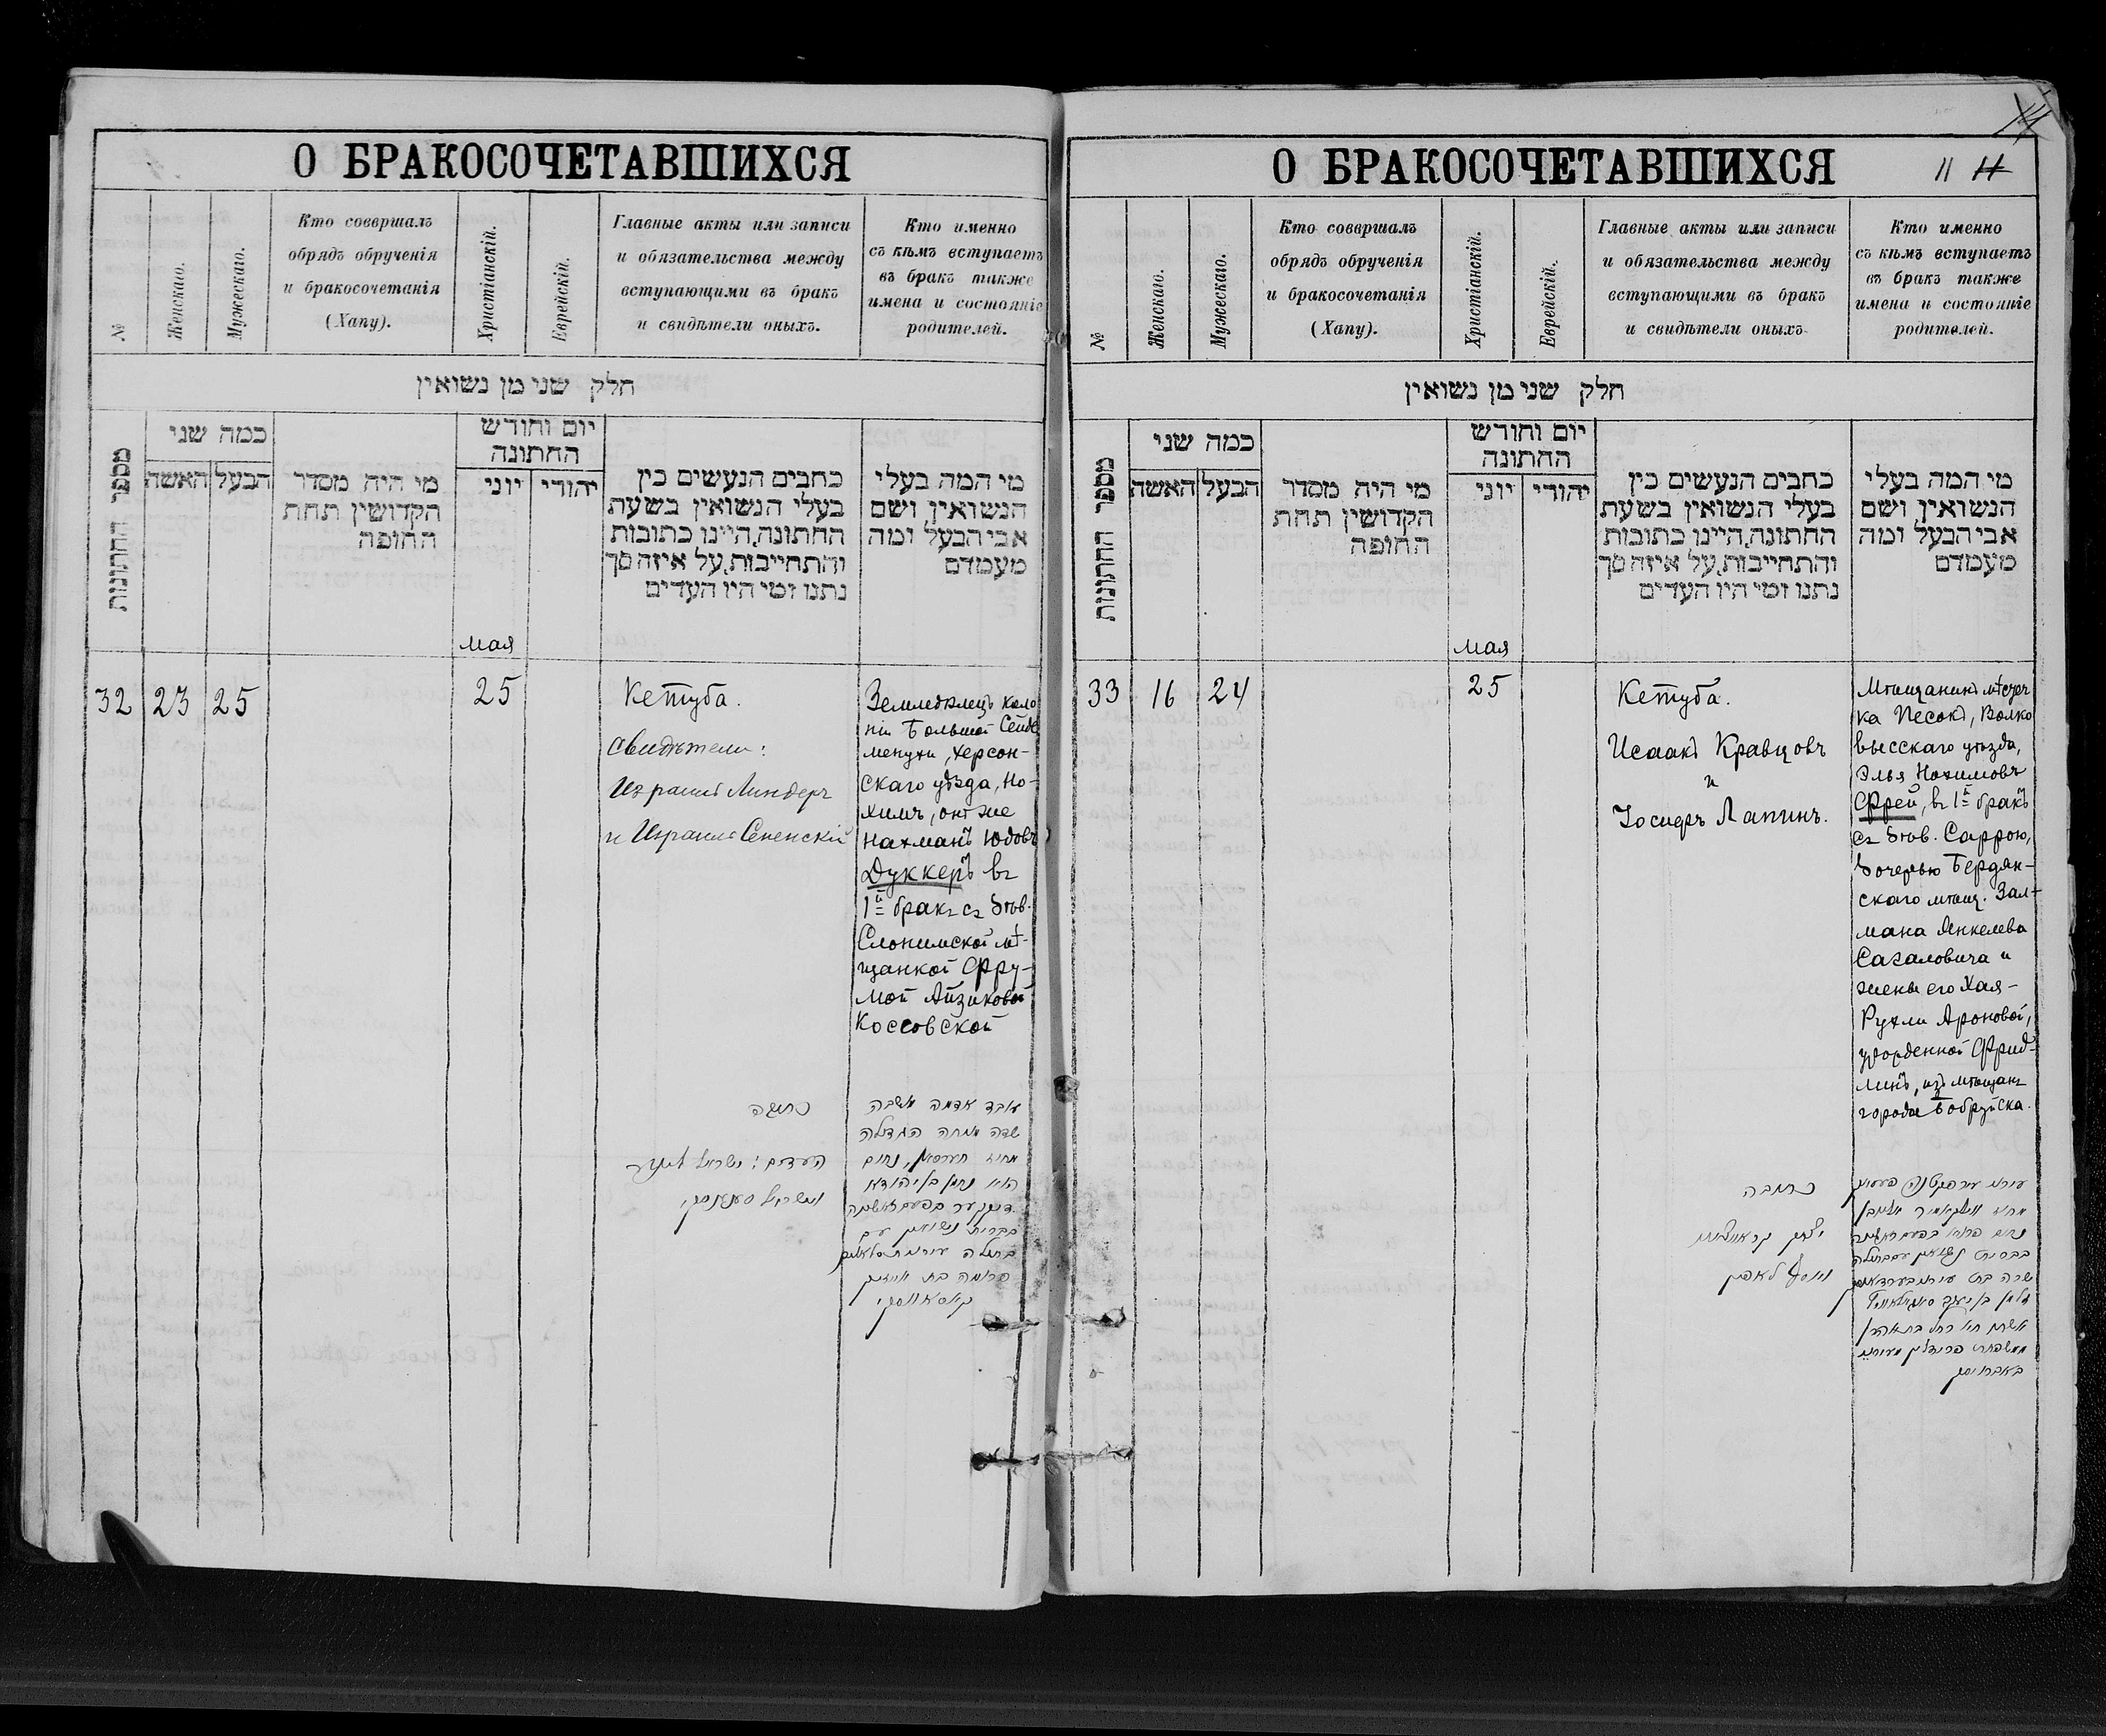 О БРАКОСОЧЕТАВШИХСЯ
№
Женскаго.
Мужескаго.
Кто совершалъ
обрядъ обрученія
и бракосочетанія
(Хапу).
Христіанскій.
Еврейскій.
Главные акты или записи
и обязательства между
вступающими въ бракъ
и свидѣтели оныхъ.
Кто именно
съ кѣмъ вступаетъ
въ бракъ также
имена и состояніе
родителей.
חלק שני מן נשואין
מספר החתונות
כמה שני
האשה
הבעל
מי היה מסדר
הקדושין תחת
החופה
יום וחודש
החתונה
יוני
יהודי
כתבים הנעשים בין
בעלי הנשואין בשעת
החתונה, היינו כתובות
והתחייבות, על איזה סך
נתנו ומי היו העדים
מי המה בעלי
הנשואין ושם
אבי הבעל ומה
מעמדם
мая
32
23
25
25
Кетуба.
Свидѣтели:
Израиль Линдеръ
и Израиль Сененскій
Земледѣлецъ коло
ніи Большой Сейде
менухи, Херсон-
скаго уѣзда, Но-
химъ, онъ же
Нахманъ Юдовъ
Дуккеръ въ
1й бракъ съ дѣв.
Слонимской мѣ-
щанкой Фру-
мой Айзиковой
Коссовской
כתובה
העדים: ישראל לינדער
וישראל סענענסקי
עובד אדמה מושבה
שדה מנוחה הגדולה
מחוז חערסאן, נחום
הוא נחמן בן יהודא
דוקקער בפעם ראשונה
בברית נשואין עם
בתולה עירונית סלאנים
פרומה בת אייזיק
קאסאווסקי
О БРАКОСОЧЕТАВШИХСЯ
11
№
Женскаго.
Мужескаго.
Кто совершалъ
обрядъ обрученія
и бракосочетанія
(Хапу).
Христіанскій.
Еврейскій.
Главные акты или записи
и обязательства между
вступающими въ бракъ
и свидѣтели оныхъ.
Кто именно
съ кѣмъ вступаетъ
въ бракъ также
имена и состояніе
родителей.
חלק שני מן נשואין
מספר החתונות
כמה שני
האשה
הבעל
מי היה מסדר
הקדושין תחת
החופה
יום וחודש
החתונה
יוני
יהודי
כתבים הנעשים בין
בעלי הנשואין בשעת
החתונה, היינו כתובות
והתחייבות, על איזה סך
נתנו ומי היו העדים
מי המה בעלי
הנשואין ושם
אבי הבעל ומה
מעמדם
мая
33
16
24
25
Кетуба.
Исаакъ Кравцовъ
и
Іосифъ Лапинъ.
Мѣщанинъ мѣстеч
ка Песокъ, Волко
высскаго уѣзда,
Элья Нохимовъ
Фрей, въ 1й бракъ
съ дѣв. Саррою,
дочерью Бердян-
скаго мѣщ. Зал-
мана Янкелева
Сагаловича и
жены его Хая-
Рухли Ароновой,
урожденной Фрид-
линъ, изъ мѣщанъ
города Бобруйска.
כתובה
יצחק קראווצאוו
ויוסף לאפין
נחום פריי בפעם ראשונה
בברית נשואין עם בתולה
זלמן בן יעקב סאגאלאוויץ
אשתו חיה רחל בת אהרן
ממשפחת פרידלין מעירוני
באברויסק